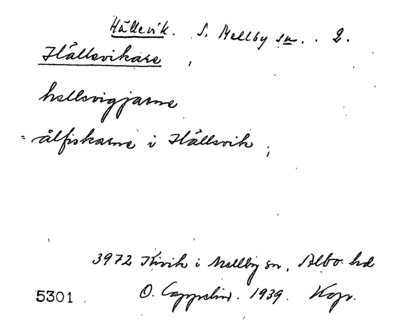 Hällevik. S. Mellby sn. . 2.
Hällsvikare,
hellsvigjarne
= ålfiskarne i Hällsvik,
3972 Kivik i Mellby sn, Albo hd
5301 O. Cappelin. 1939. Kop.